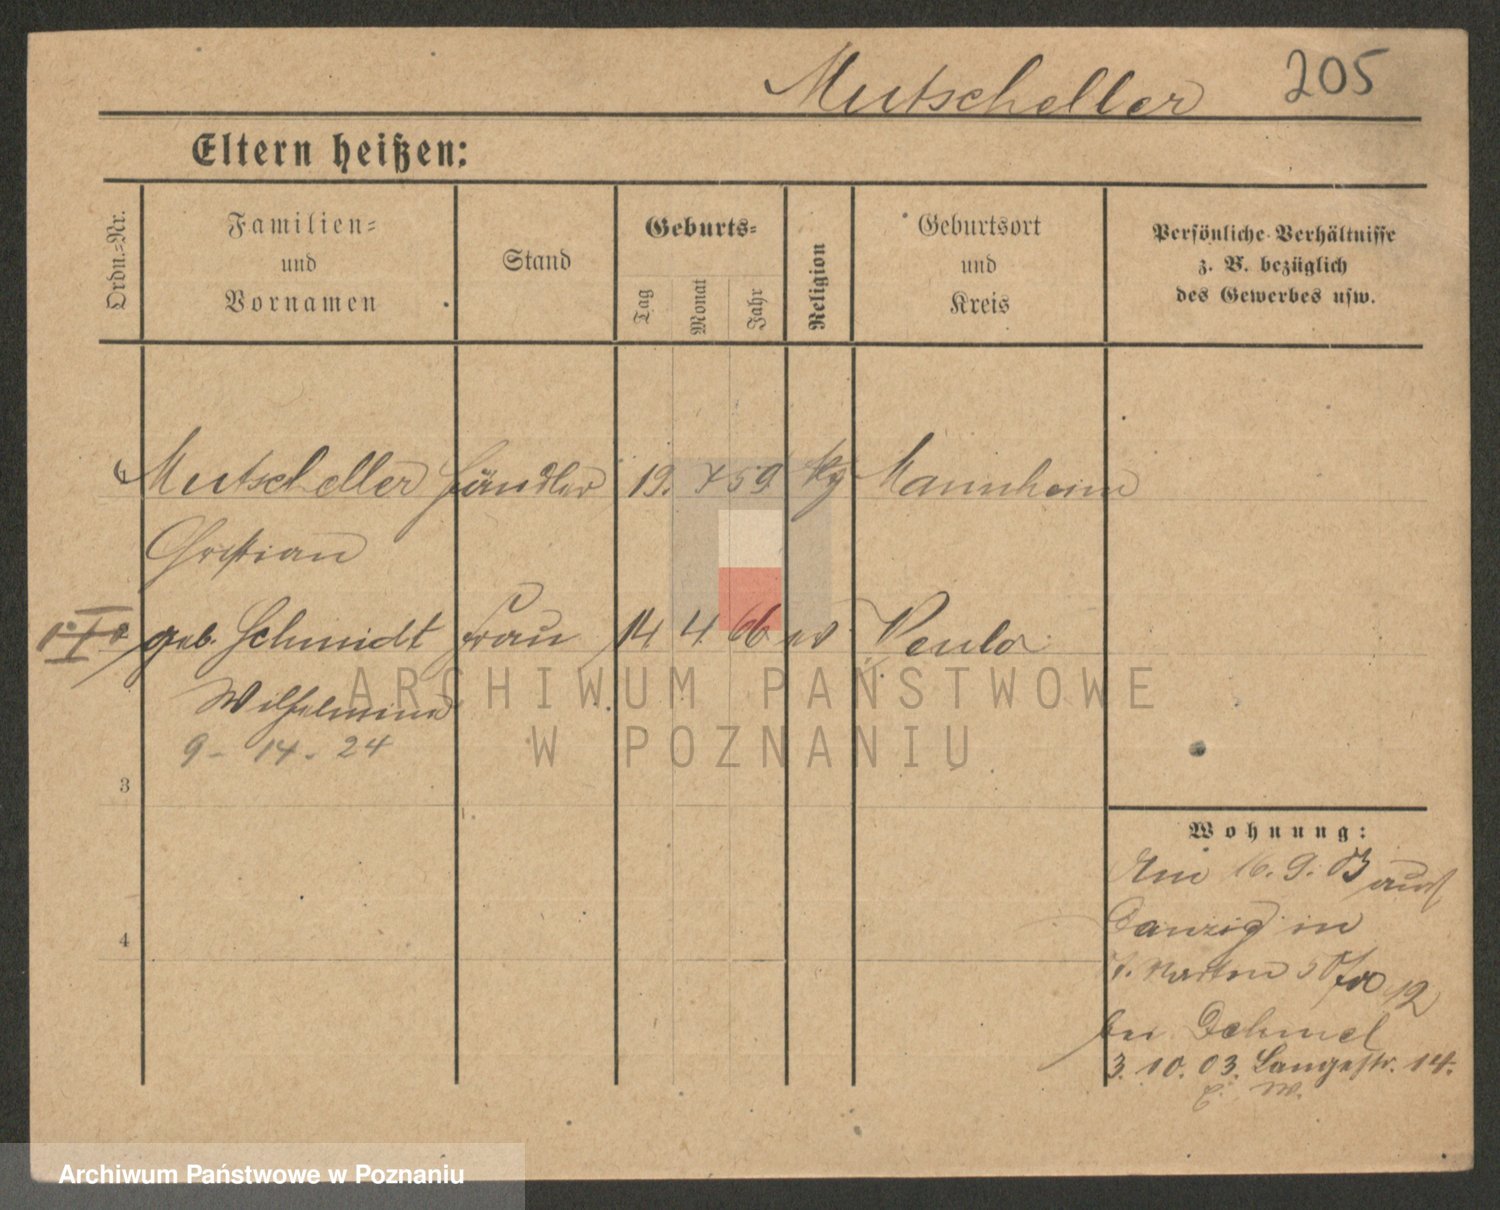 Mutscheller 205
Eltern heißen:
Ordn.=Nr.
Familien=
und
Vornamen
Stand
Geburts=
Tag
Monat
Jahr
Religion
Geburtsort
und
Kreis
Persönliche Verhältnisse
z. B. bezüglich
des Gewerbes usw.
Mutscheller Händler 19. 7 59 Mannheim
Christian
geb. Schmidt Frau 14 4 66 ev
Wilhelmine
9 - 14 - 24
3
4
Wohnung:
Am 16. 9. 03 aus
Danzig in
St. Martin
bei Dehmel
3. 10. 03. Langestr. 14.
ARCHIWUM PAŃSTWOWE
W POZNANIU
Archiwum Państwowe w Poznaniu